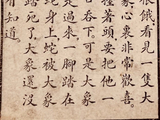 很餓看見一隻大
象心裏非常歡喜。
張著嘴要把他一
口吞下可是大象
走過來一脚踏在
蛇身上蛇被大象
踏死了大象還沒
有知道